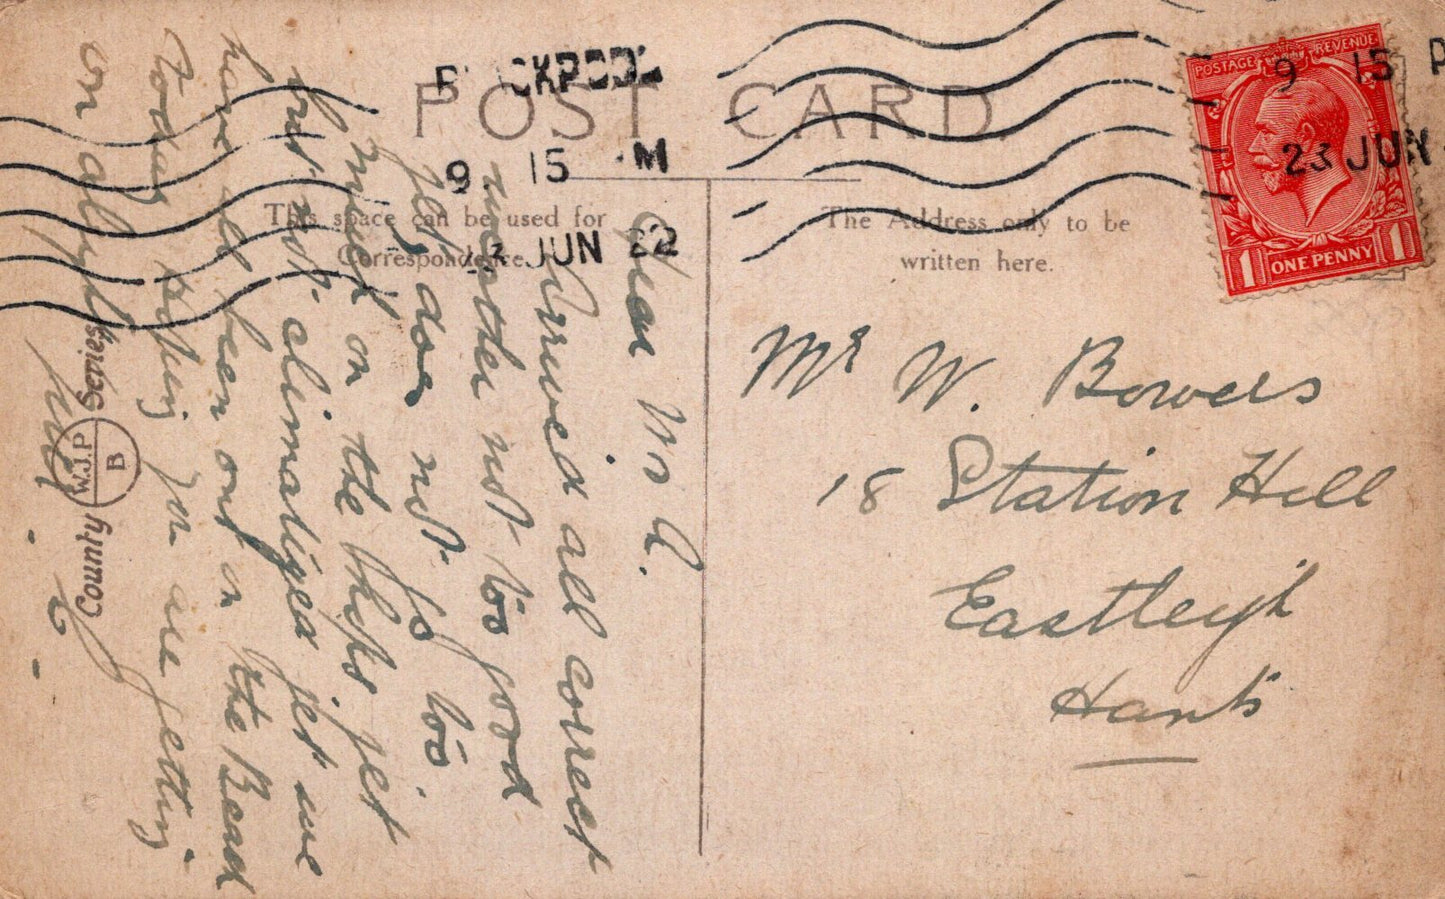 POST CARD
This space can be used for
Correspondence.
The Address only to be
written here.
BLACKPOOL
9 15 PM
23 JUN 22
9 15 P
23 JUN
POSTAGE REVENUE
1 ONE PENNY 1
Mr W. Bowers
18 Station Hill
Eastleigh
Hants
Dear W
Arrived all correct
weather not to good
yet does not
much on the ships yet
but not climatized yet we
have all been out on the Beach
today Hoping you are getting
on alright
County W.J.P B Series